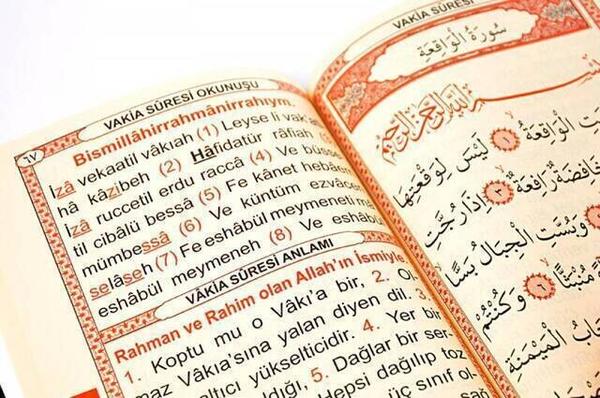 VAKİA SÛRESİ OKUNUŞU
٦٧
Bismillâhirrahmânirrahıym.
İzâ vekaatil vâkıah (1) Leyse li vak'
hâ kâzibeh (2) Hâfidatür râfiah (3)
İzâ ruccetil erdu raccâ (4) Ve büsse
til cibâlü bessâ (5) Fe kânet hebâen
mümbessâ (6) Ve küntüm ezvâcen
selâseh (7) Fe eshâbül meymeneti m
eshâbül meymeneh (8) Ve eshâbü
VÂKİA SÛRESİ ANLAMI
Rahman ve Rahim olan Allah'ın İsmiyle
1. Koptu mu o Vâkı'a bir, 2. Ol-
maz Vâkıa'sına yalan diyen dil. 3.
altıcı yükselticidir. 4. Yer bir
ldığı, 5. Dağlar bir ser-
Hepsi dağılıp toz
üç sınıf ol-
VAKİA SÛRESİ
سُورَةُ الْوَاقِعَةِ
بِسْمِ اللّٰهِ الرَّحْمٰنِ الرَّحِيمِ
الْوَاقِعَةُ ١ لَيْسَ لِوَقْعَتِهَا
خَافِضَةٌ رَافِعَةٌ ٣ اِذَا رُجَّتِ
وَبُسَّتِ الْجِبَالُ بَسًّا
مُنْبَثًّا ٦ وَكُنْتُمْ
الْمَيْمَنَةِ